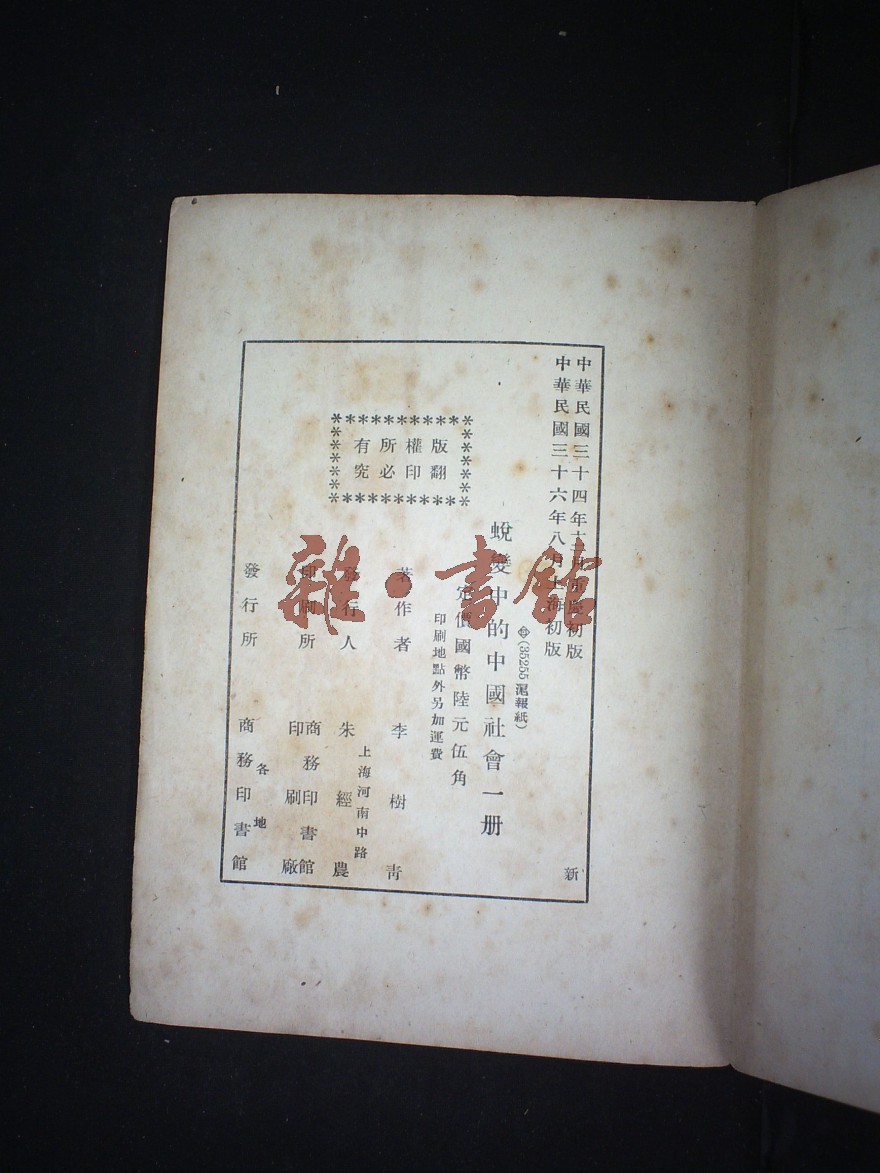 中華民國三十四年十二月重慶初版
中華民國三十六年八月上海初版
新
㊥(35255 滬報紙)
蛻變中的中國社會一册
定價國幣陸元伍角
印刷地點外另加運費
版權所有
翻印必究
著作者 李樹青
上海河南中路
發行人 朱經農
印刷所 商務印書館
印刷廠
各地
發行所 商務印書館
雜·書館